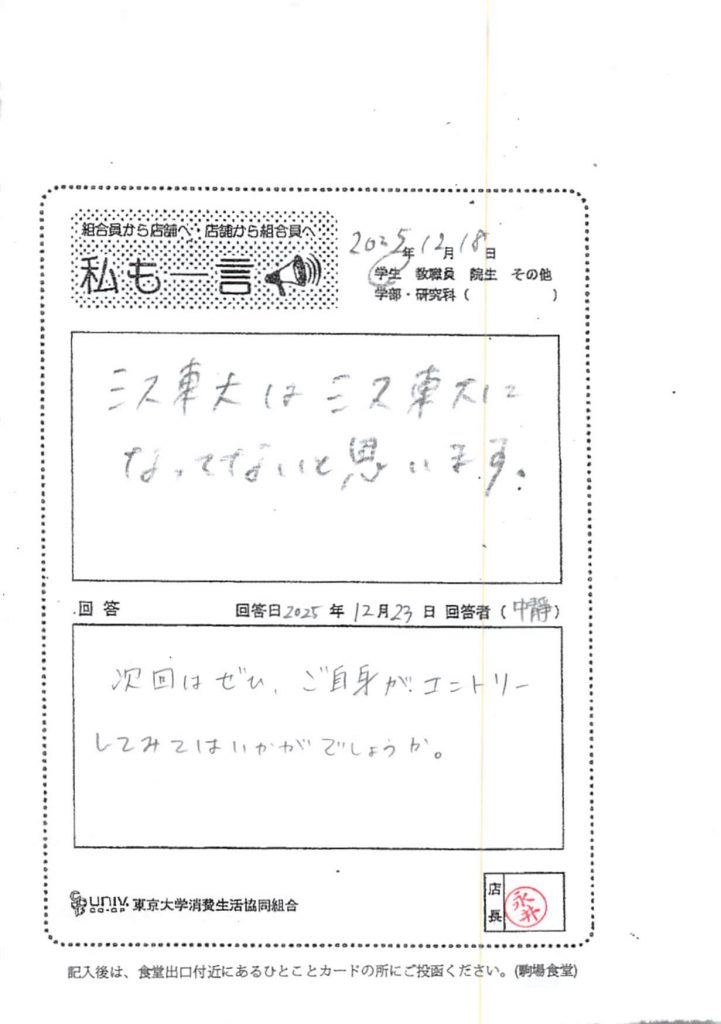 組合員から店舗へ・店舗から組合員へ
私も一言
2025年12月18日
学生 教職員 院生 その他
学部・研究科（ ）
ミス東大はミス東大に
なってないと思います。
回答 回答日2025年12月23日 回答者（中静）
次回はぜひ、ご自身がエントリー
してみてはいかがでしょうか。
UNIV. CO-OP 東京大学消費生活協同組合
店長 永井
記入後は、食堂出口付近にあるひとことカードの所にご投函ください。(駒場食堂)